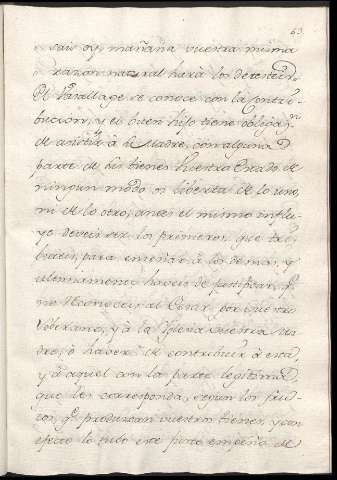 63
sais oy, mañana vuestra misma
razon natural hará los detesteis.
El Vasallage se conoce con la Contri-
bucion, y el buen hijo tiene obligaon.
de asistir à su Madre, con alguna
parte de sus bienes: Vuestro Estado de
ningun modo os liberta de lo uno,
ni de lo otro, antes el mismo influ-
ye deveis ser los primeros, que tri-
buteis, para enseñar à los demas, y
ultimamente haveis de justificar, qe.
no reconoceis al Cesar por vuestro
Soberano, y à la Iglesia vuestra Ma-
dre, ò haveis de contribuir à esta,
y à aquel con la parte legitima,
que les corresponda, segun los fru-
tos, qe. produzcan vuestros bienes, y con
efecto lo tubo este punto empeño de